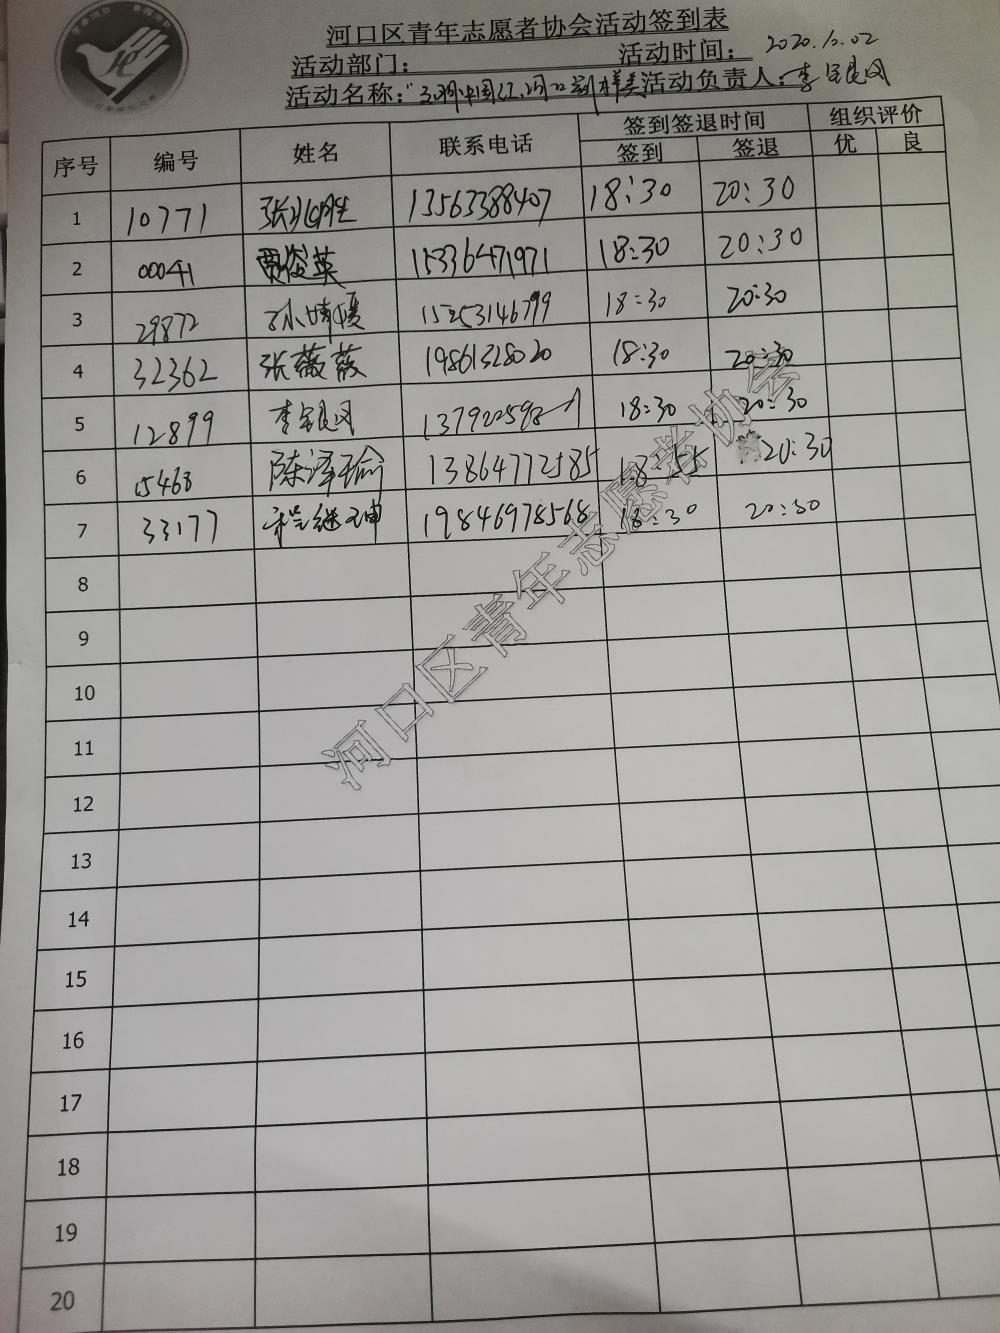 河口区青年志愿者协会活动签到表
活动部门: 活动时间: 2020.10.02
活动名称: 活动负责人: 李银凤
序号 编号 姓名 联系电话 签到签退时间 组织评价
签到 签退 优 良
1 10771 13563388407 18:30 20:30
2 00041 贾俊英 15336471971 18:30 20:30
3 29872 孙婧媛 15253146799 18:30 20:30
4 32362 张薇薇 19861328020 18:30 20:30
5 12899 李银凤 18:30 20:30
6 15468 陈泽瑜 13864772585 18:55 20:30
7 33177 19846978568 18:30 20:30
8
9
10
11
12
13
14
15
16
17
18
19
20
河口区青年志愿者协会